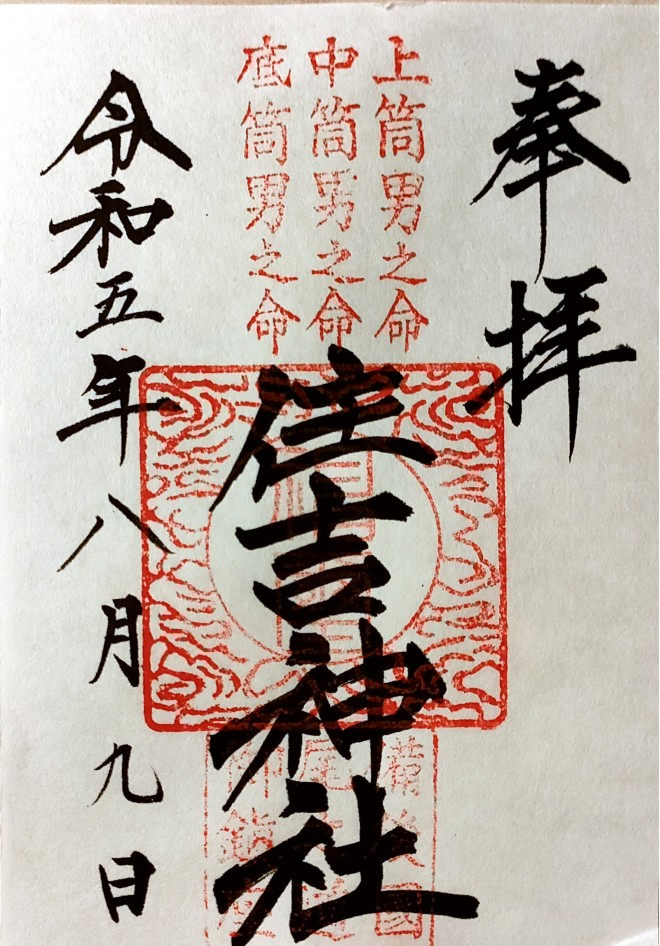 奉拝
上筒男之命
中筒男之命
底筒男之命
住吉神社
備後國
御鎮座
令和五年八月九日